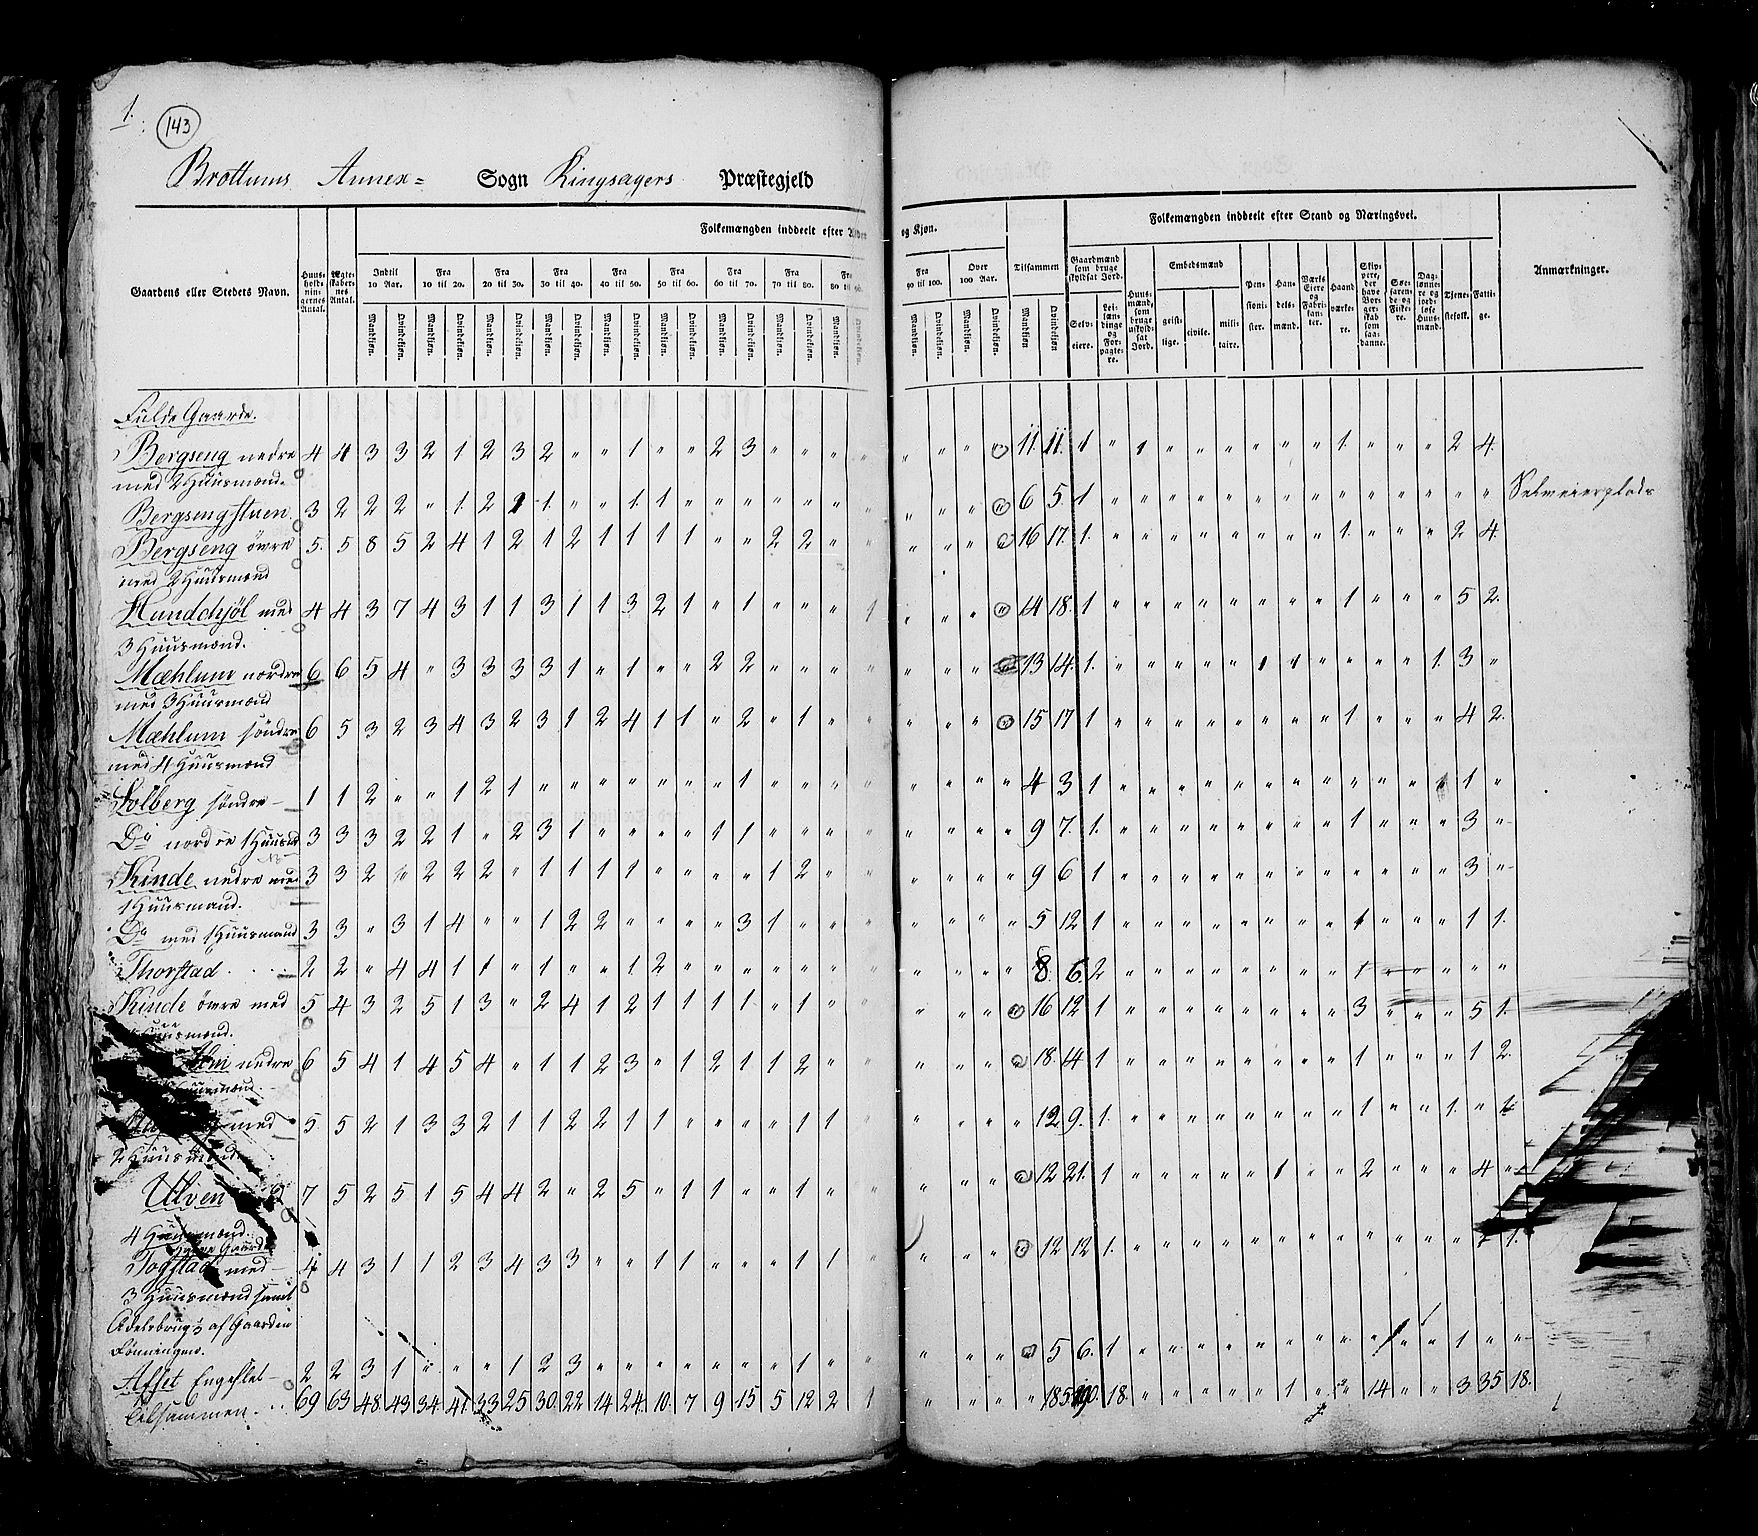 1.
143
Brottums Annex= Sogn Ringsagers Præstegjeld
Folkemængden inddeelt efter Alder og Kjøn.
Folkemængden inddeelt efter Stand og Næringsvei.
Gaardens eller Stedets Navn.
Huus-holdnin-gernes Antal.
Ægte-skaber-nes Antal.
Indtil 10 Aar.
Fra 10 til 20.
Fra 20 til 30.
Fra 30 til 40.
Fra 40 til 50.
Fra 50 til 60.
Fra 60 til 70.
Fra 70 til 80.
Fra 80 til 90.
Fra 90 til 100.
Over 100 Aar.
Tilsammen
Mandkjøn. Qvindekjøn.
Gaardmænd som bruge skyldsat Jord.
Selv-eiere.
Lei-lændinge og For-pagte-re.
Huus-mænd, som bruge uskyld-sat Jord.
Embedsmænd
geist-lige.
civile.
mili-taire.
Pen-sioni-ster.
Han-dels-mænd.
Værks Eiere og Fabri-kanter.
Haand værke-re.
Dag-lønne-re og jord-løse Huus-mænd.
Tjene-stefolk.
Fatti-ge.
Anmærkninger.
Fulde Gaarde.
Bergseng nedre 4 4 3 3 2 1 2 3 2 " " 1 " " 2 3 " " " " " " " 11 11 1 " 1 " " " " " " 1 " " " 2 4
med 2 Huusmænd.
Bergsengstuen 3 2 2 2 " 1 2 1 1 " " 1 1 " " " " " " " " " " 6 5 1 " " " " " " " " " " " " " "
Bergseng øvre 5 5 8 5 2 4 1 2 1 2 1 1 1 1 " " 2 2 " " " " " 16 17 1 " " " " " " " " 1 " " " 2 4
med 2 Huusmænd
med 4 4 3 7 4 3 1 1 3 1 1 3 2 1 " 1 " " " 1 " " " 14 18 1 " " " " " " " " 1 " " " 5 2
3 Huusmænd.
Mæhlum nordre 6 6 5 4 " 3 3 3 3 1 " 1 " " 2 2 " " " " " " " 13 14 1 " " " " " 1 1 " " " " 1 3 "
med 3 Huusmænd
Mæhlum söndre 6 5 3 2 3 4 3 2 3 1 2 4 1 1 " 2 " 1 " " " " " 15 17 1 " " " " " " " " 1 " " " 4 2
med 4 Huusmænd
Solberg söndre 1 1 2 " " 1 2 1 " " " " " " " 1 " " " " " " " 4 3 1 " " " " " " " " " " " 1 "
Do nordre 1 Huusm 3 3 3 2 2 1 " 2 3 1 " " " " 1 1 " " " " " " " 9 7 1 " " " " " " " " 1 " " " 3 "
Kinde nedre med 3 3 2 " 2 2 2 " 1 1 1 1 " " " " 1 2 " " " " " 9 6 1 " " " " " " " " " " " " 3 "
1 Huusmand.
Do med 1 Huusmand 3 3 " 3 1 4 " " 1 2 2 " " " " 3 1 " " " " " " 5 12 1 " " " " " " " " 1 " " " 1 1
Thorstad 2 2 " 4 4 1 1 " 1 " " 1 2 " " " " " " " " " " 8 6 2 " " " " " " " " 1 " " " " "
Kinde øvre med 5 4 3 2 5 1 3 " 2 4 1 2 1 1 1 1 " 1 " " " " " 16 12 1 " " " " " " " " 3 " " " 5 1
Huusmænd.
nedre 6 5 4 1 4 5 4 " 1 1 2 3 " 1 2 1 1 2 " " " " " 18 14 1 " " " " " " " " 1 " " " 1 2
Huusmænd
med 5 5 2 1 3 3 2 1 1 2 2 1 1 " " " " 1 1 " " " " 12 9 1 " " " " " " " " 1 " " 1 "
2 Huusmænd
Ulven 7 5 2 5 1 5 4 4 2 " 2 5 " 1 1 " " 1 " " " " " 12 21 1 " " " " " 1 " " 2 " " " 4 "
4 Huusmænd.
Gaarde
med 4 4 3 1 1 2 3 4 3 3 " " 1 1 " " " 1 1 " " " " 12 12 1 " " " " " " " " " " " " 1
3 Huusmænd samt
af Gaarden
Afset 2 2 3 1 " " " 1 2 3 " " " " " " " 1 " " " " " 5 6 1 " " " " " " " " " " " 1 " "
Tilsammen 69 63 48 43 34 41 33 25 30 22 14 24 10 7 9 15 5 12 2 1 " " " 185 190 18 " " " " " 1 " " 14 " " 3 35 18